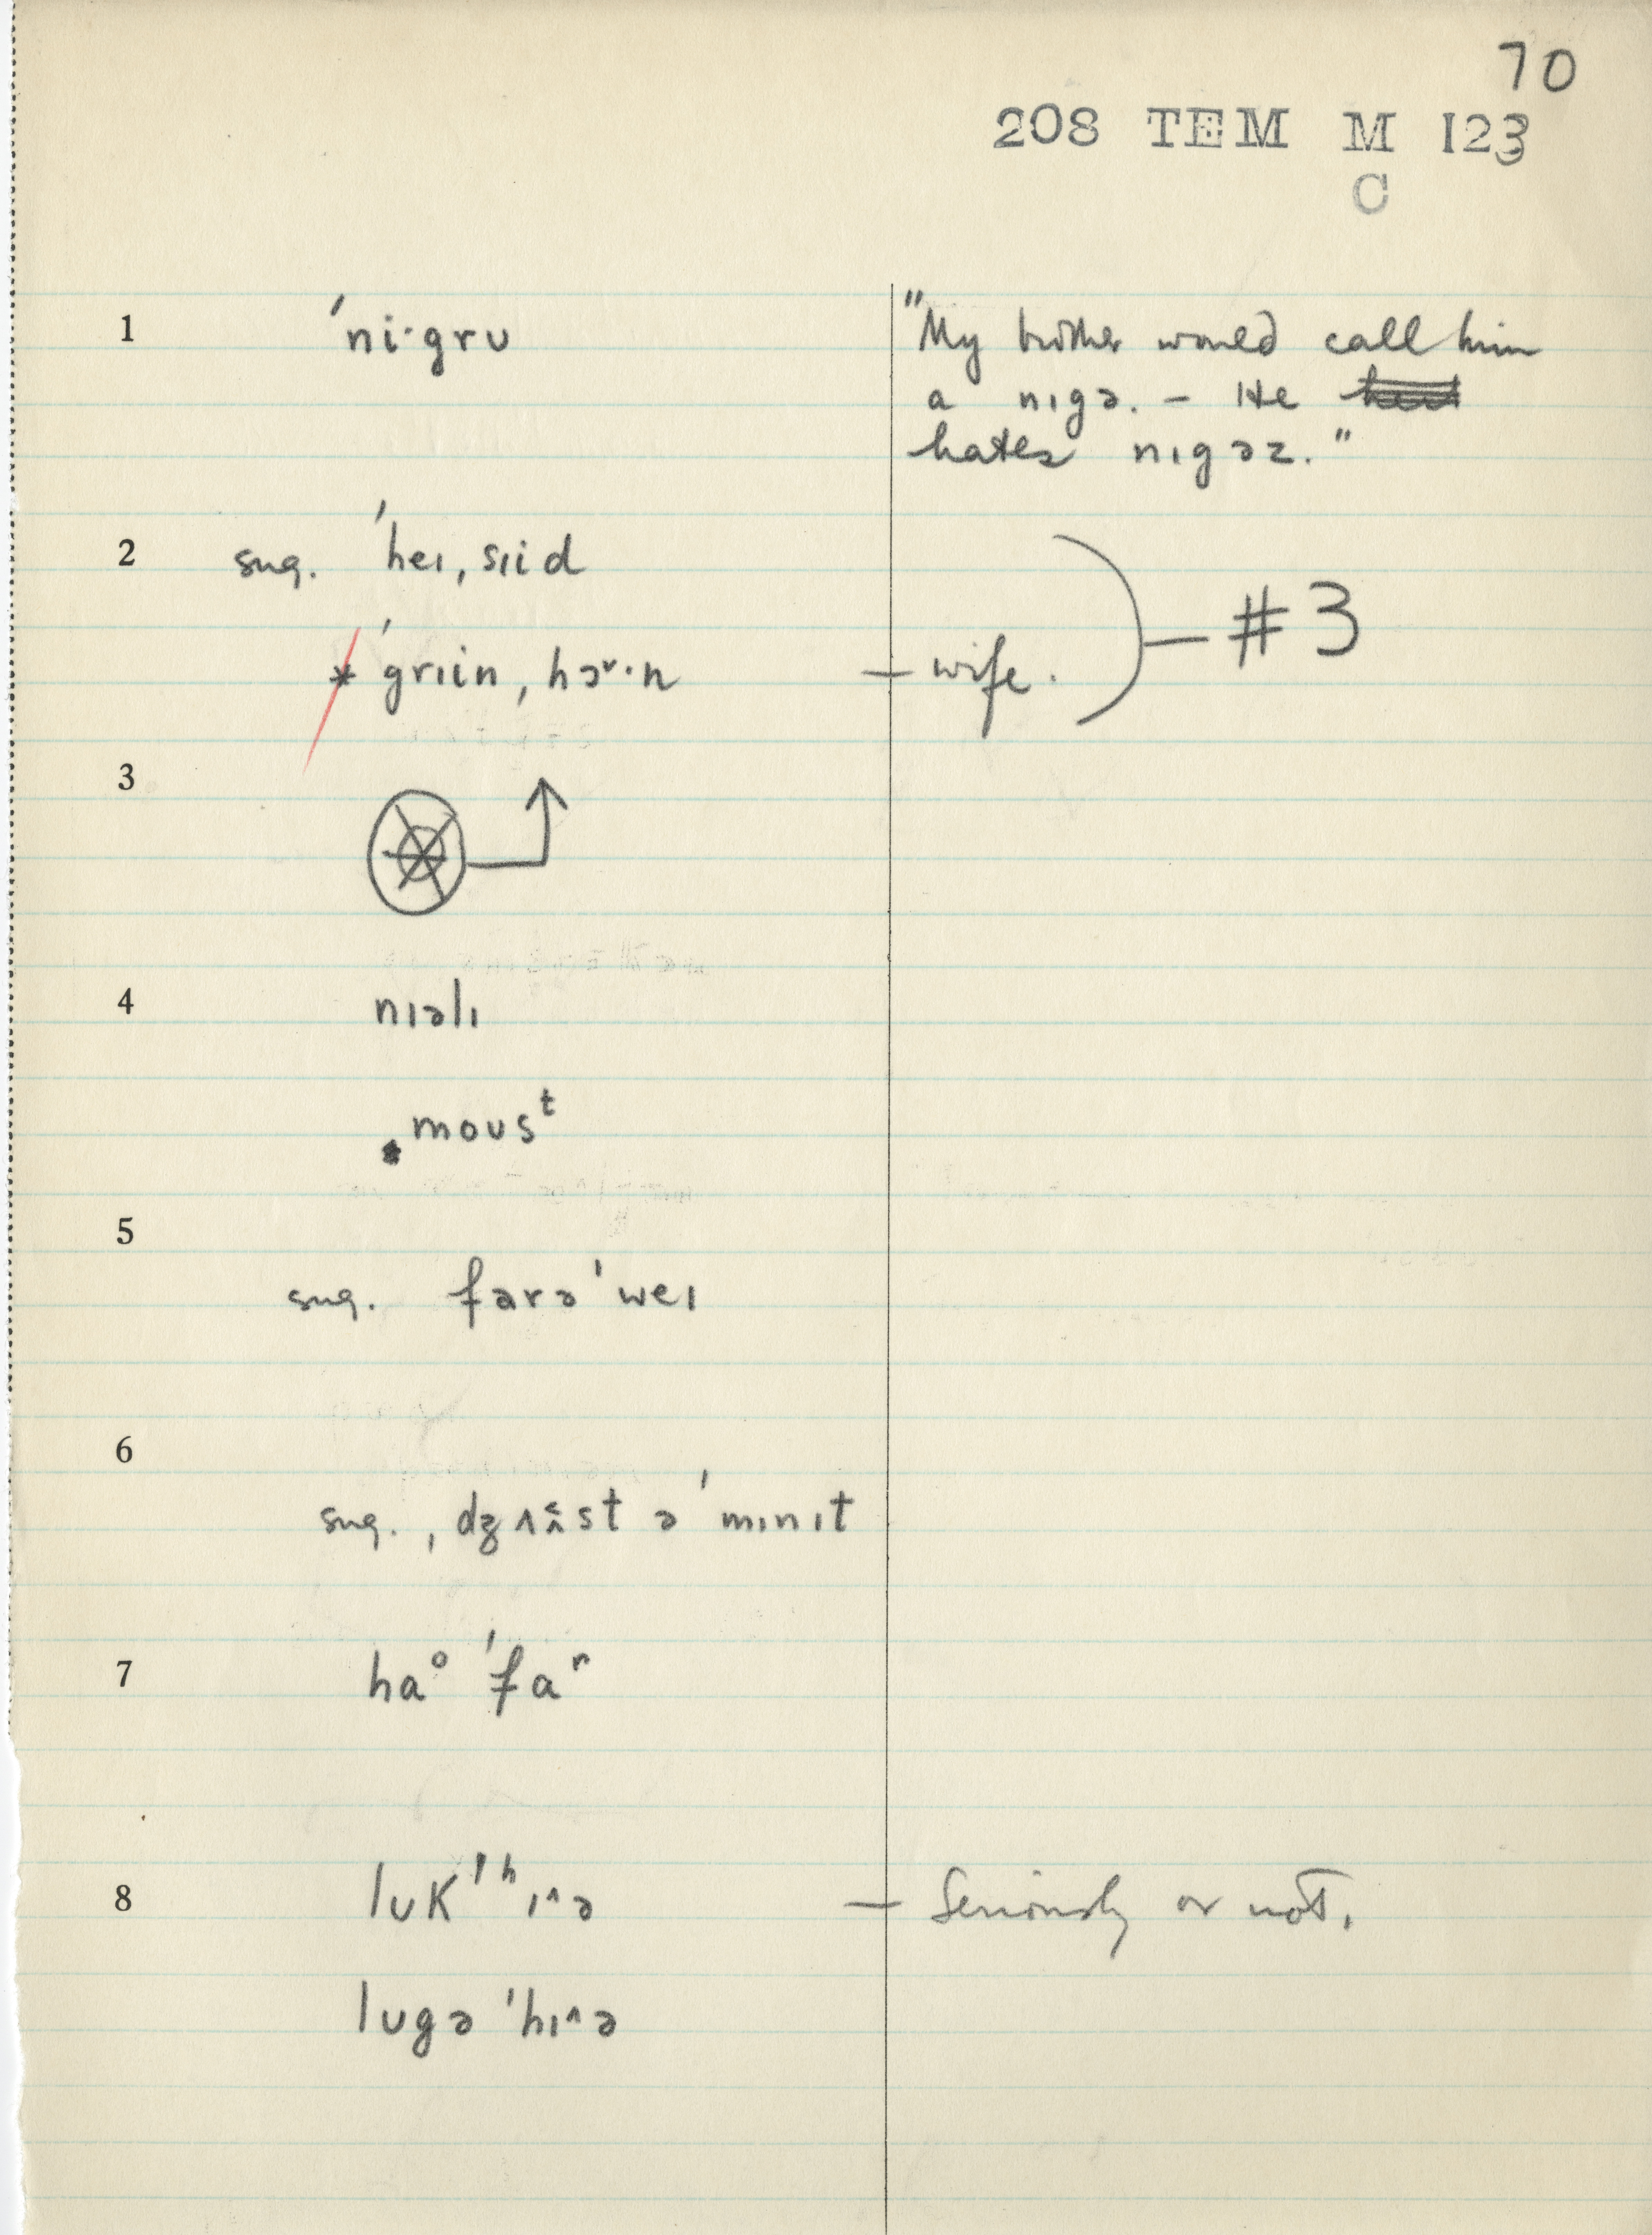 70
208 TEM M 123
C
1 ˈni·grʊ "My brother would call him
a nɪgə. – He
hates nɪgəz."
2 sug. ˈheɪ, sɪid
* ˈgrɪin, hɔ·n – wife. – #3
3
4 nɪəlɪ
moʊsᵗ
5
sug. farəˈweɪ
6
sug. ˌdʒʌst ə ˈmɪnɪt
7 haᵒ ˈfaʳ
8 lʊkˈʰɪ^ə – Seriously or not.
lʊgə ˈhɪ^ə